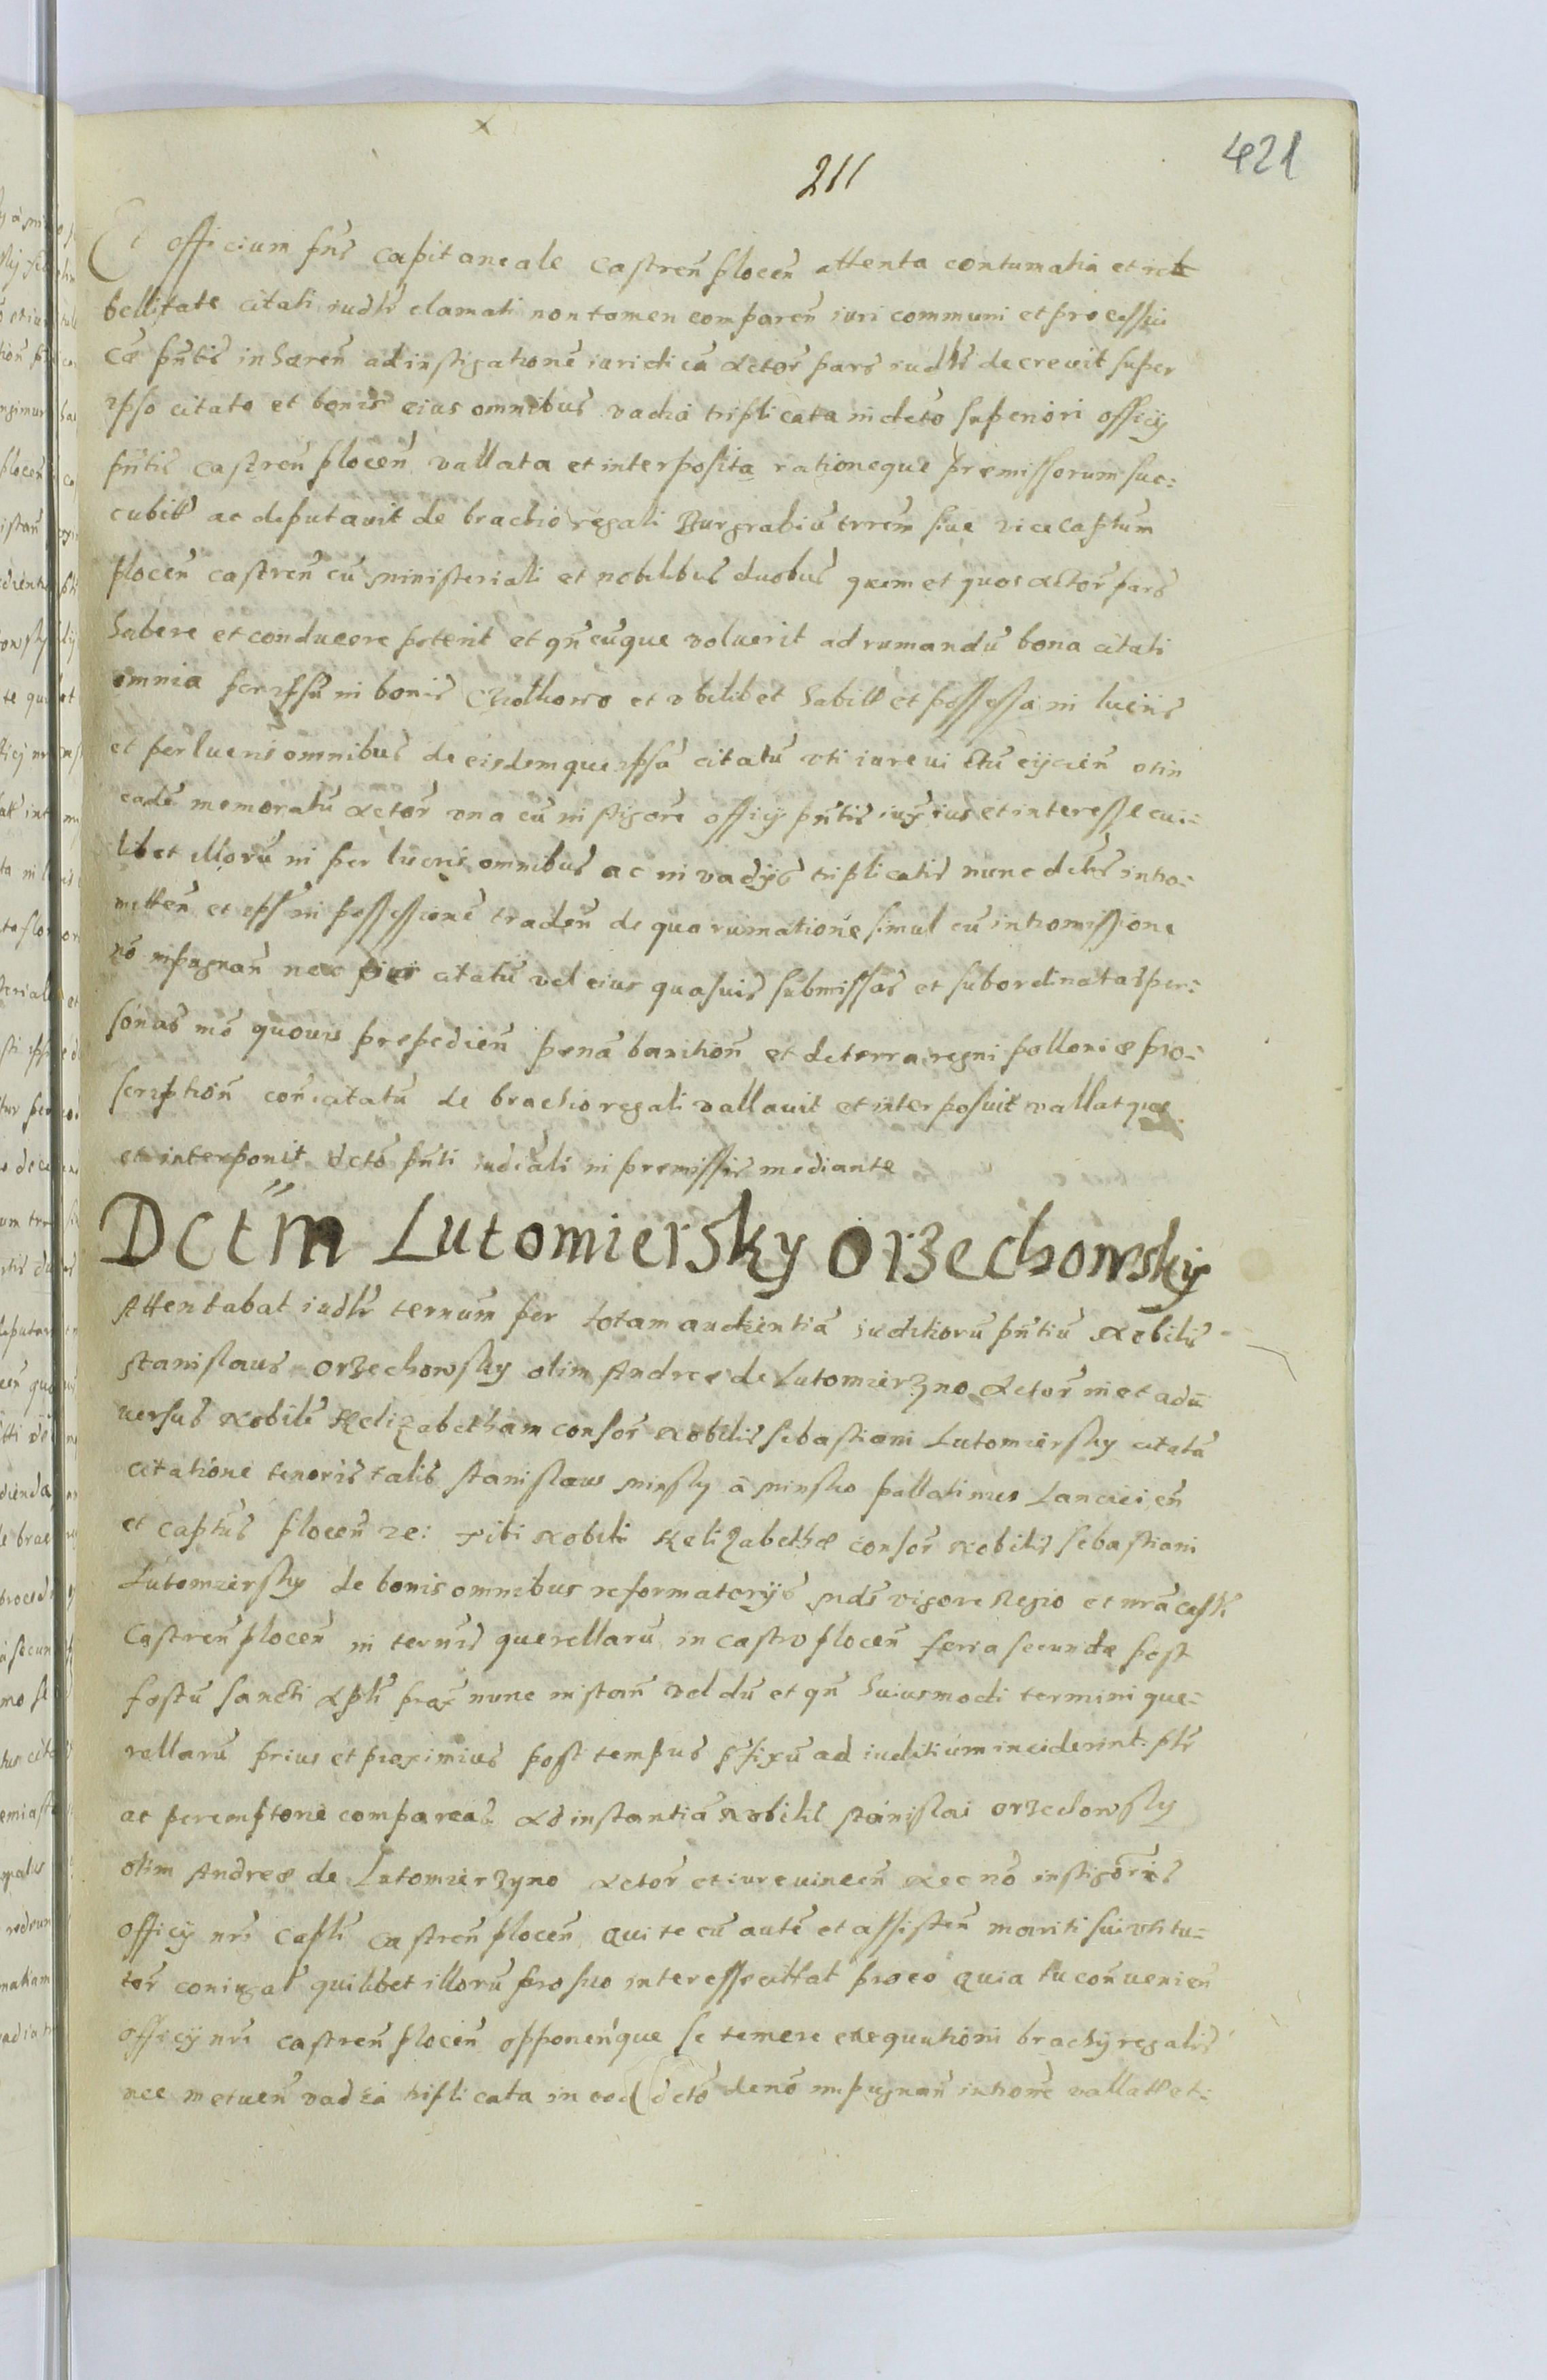 x
211
421
Et officium pñs Capitaneale Castreñ ploceñ attenta contumatia et re-
bellitate citati iudlr clamati non tamen compareñ iuri communi et processui
cæ pñtis inhæreñ ad instigationē iuridicā Actor pars iudlr decrevit super
ipso citato et bonis eius omnibus vadia triplicata in dcto superiori officij
pñtis castreñ plocēn vallata et interposita rationeque premissorum suc:
cubitt ac deputavit de brachio regali Burgrabiū trrēm siue viceCaptum
plocēn castreñ cū ministeriali et nobilibus duobus quem et quos actor pars
habere et conducere poterit et qñcūque voluerit ad rumandū bona citati
omnia per ipsū in bonis et ubilibet habitt et possessa in lucris
et per lucris omnibus de eisdemque ipsū citatū uti iure victū eijcieñ et in
eadē memoratū Actor una cū instigore officij pñtis iux ius et interesse cui:
libet illorū in per lucris omnibus ac in vadijs triplicatis nunc dctis intro:
mitteñ et ipsis in possessionē tradeñ de qua ruinatione simul cū intromissione
nō inpugnañ nec per citatū vel eius quasuis submissas et subordinatas per:
sonas mō quouis prepedieñ pœnā banitioñ et de terra regni polloniæ pro:
scriptioñ coñ citatū de brachio regali vallavit et interposuit vallatque
et interponit dcto pñti iudiciali in premissis mediante
Dctm Lutomiersky Orzechowsky
Attentabat iudlr ternum per totam audientiā iuditiorū pñtiū Nobilis
Stanislaus Orzechowsky olim Andreæ de Lutomierzyno Actor in et adū
versus Nobilē Helizabetham consor Nobilis Sebastiani Lutomiersky citatā
citatione tenoris talis Stanislaus Minsky ā Minsko pallatinus Lanciciēn
et Captus plocēn ze: Tibi Nobili Helizabethæ consor Nobilis Sebastiani
Lutomiersky de bonis omnibus reformatorijs mds vigore Regio et nra capli
Castreñ plocēn in ternis querellarū in castro plocēn feria secunda post
festū sancti prox nunc instañ vel dū et qñ huiusmodi termini que:
rellarū prius et proximius post tempus pfixū ad iuditium inciderint plr
ac peremptorie compareas Ad instantiā Nobilis Stanislai Orzechowsky
olim Andreæ de Lutomierzyno Actor et iure vinceñ Nec nō instigoris
officij nri Capli Castreñ plocēn Qui te cū autē et assisteñ mariti sui uti tu:
tor coniugal quilibet illorū pro suo interesse citat pro eo quia tu coñvenieñ
officij nri castreñ plocēn opponeñque se temere exequutioni brachij regalis
nec metueñ vadia triplicata in eod dcto de nō inpugnañ introñe vallatt et: